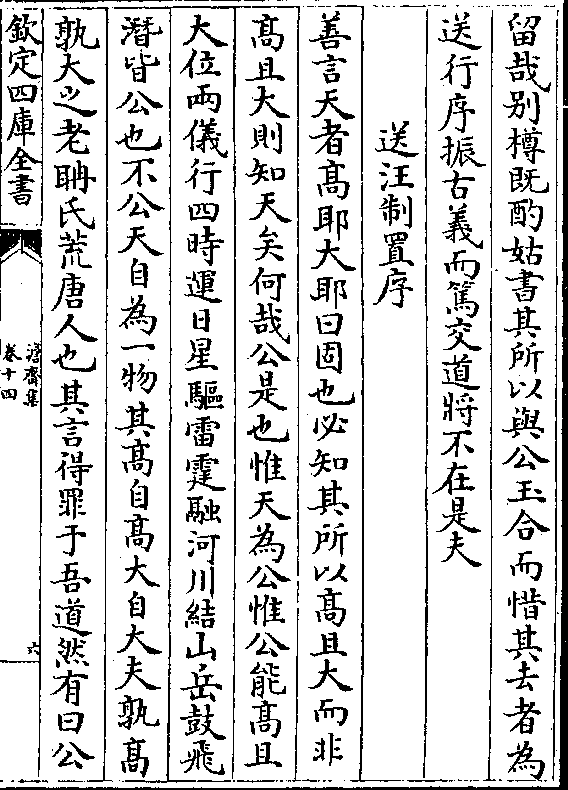 留哉别樽既酌姑書其所以與公玉合而惜其去者為
送行序振古義而篤交道將不在是夫
送汪制置序
善言天者髙耶大耶曰固也必知其所以髙且大而非
髙且大則知天矣何哉公是也惟天為公惟公能髙且
大位兩儀行四時運日星驅雷霆融河川結山岳鼓飛
潛皆公也不公天自為一物其髙自髙大自大夫孰髙
孰大之老聃氏荒唐人也其言得罪于吾道然有曰公
欽定四庫全書
卷十四
六